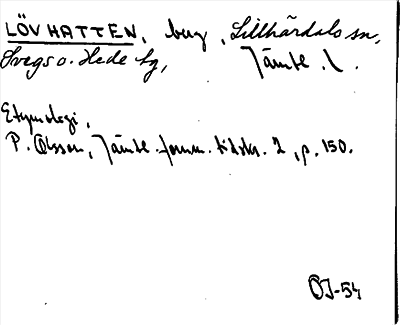 LÖVHATTEN, berg, Lillhärdals sn,
Svegs o. Hede tg, Jämtl. l.
Etymologi,
P. Olsson, Jämtl. fornm. tidskr. 2, p. 150.
OJ-54